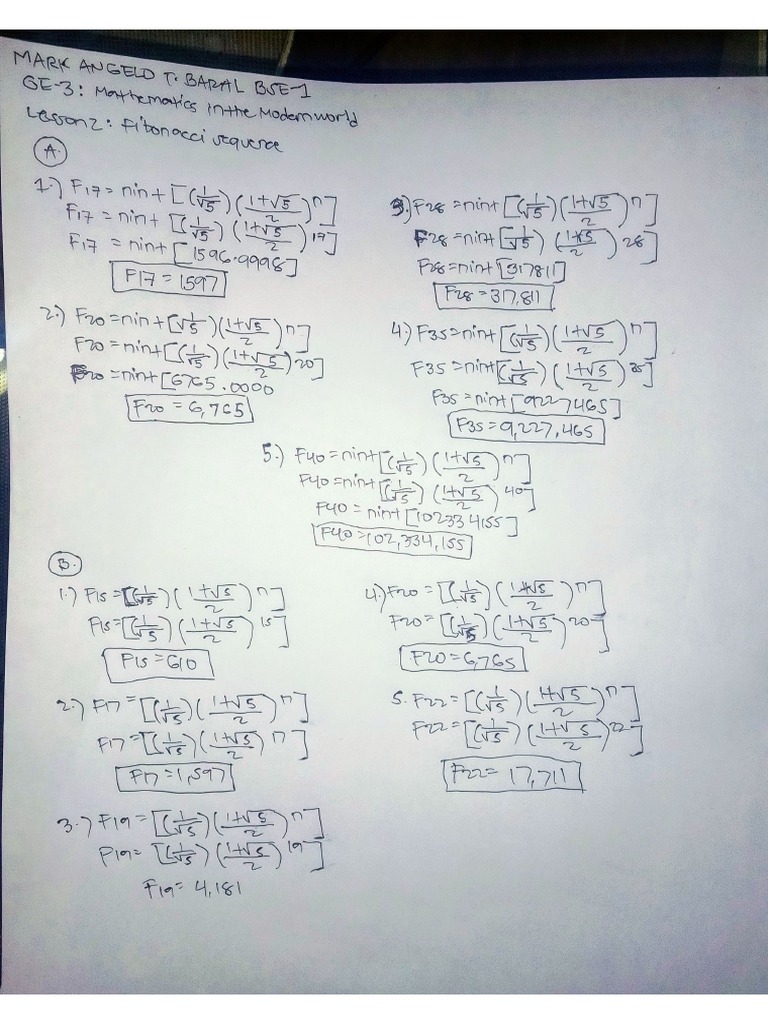 MARK ANGELO T. BARAL BSE-1
GE-3: Mathematics in the Modern world
Lesson 2: Fibonacci sequence
A.
1.) F17 = nint [(1/√5)(1+√5/2)^n]
F17 = nint [(1/√5)(1+√5/2)^17]
F17 = nint [1596.9998]
F17 = 1597
2.) F20 = nint [√5)(1+√5/2)^n]
F20 = nint [(1/√5)(1+√5/2)^20]
F20 = nint [6765.0000
F20 = 6,765
3.) F28 = nint [(1/√5)(1+√5/2)^n]
F28 = nint [1/√5)(1+√5/2)^28]
F28 = nint [317811]
F28 = 317,811
4.) F35 = nint [(1/√5)(1+√5/2)^n]
F35 = nint [(1/√5)(1+√5/2)^35]
F35 = nint [9227465]
F35 = 9,227,465
5.) F40 = nint [(1/√5)(1+√5/2)^n]
F40 = nint [(1/√5)(1+√5/2)^40]
F40 = nint [102334155]
F40 = 102,334,155
B.
1.) F15 = [(1/√5)(1+√5/2)^n]
F15 = [(1/√5)(1+√5/2)^15]
F15 = 610
2.) F17 = [(1/√5)(1+√5/2)^n]
F17 = [(1/√5)(1+√5/2)^17]
F17 = 1,597
3.) F19 = [(1/√5)(1+√5/2)^n]
F19 = [(1/√5)(1+√5/2)^19]
F19 = 4,181
4.) F20 = [(1/√5](1+√5/2)^n]
F20 = [(1/√5)(1+√5/2)^20]
F20 = 6,765
5. F22 = [(1/√5)(1+√5/2)^n]
F22 = [(1/√5)(1+√5/2)^22]
F22 = 17,711